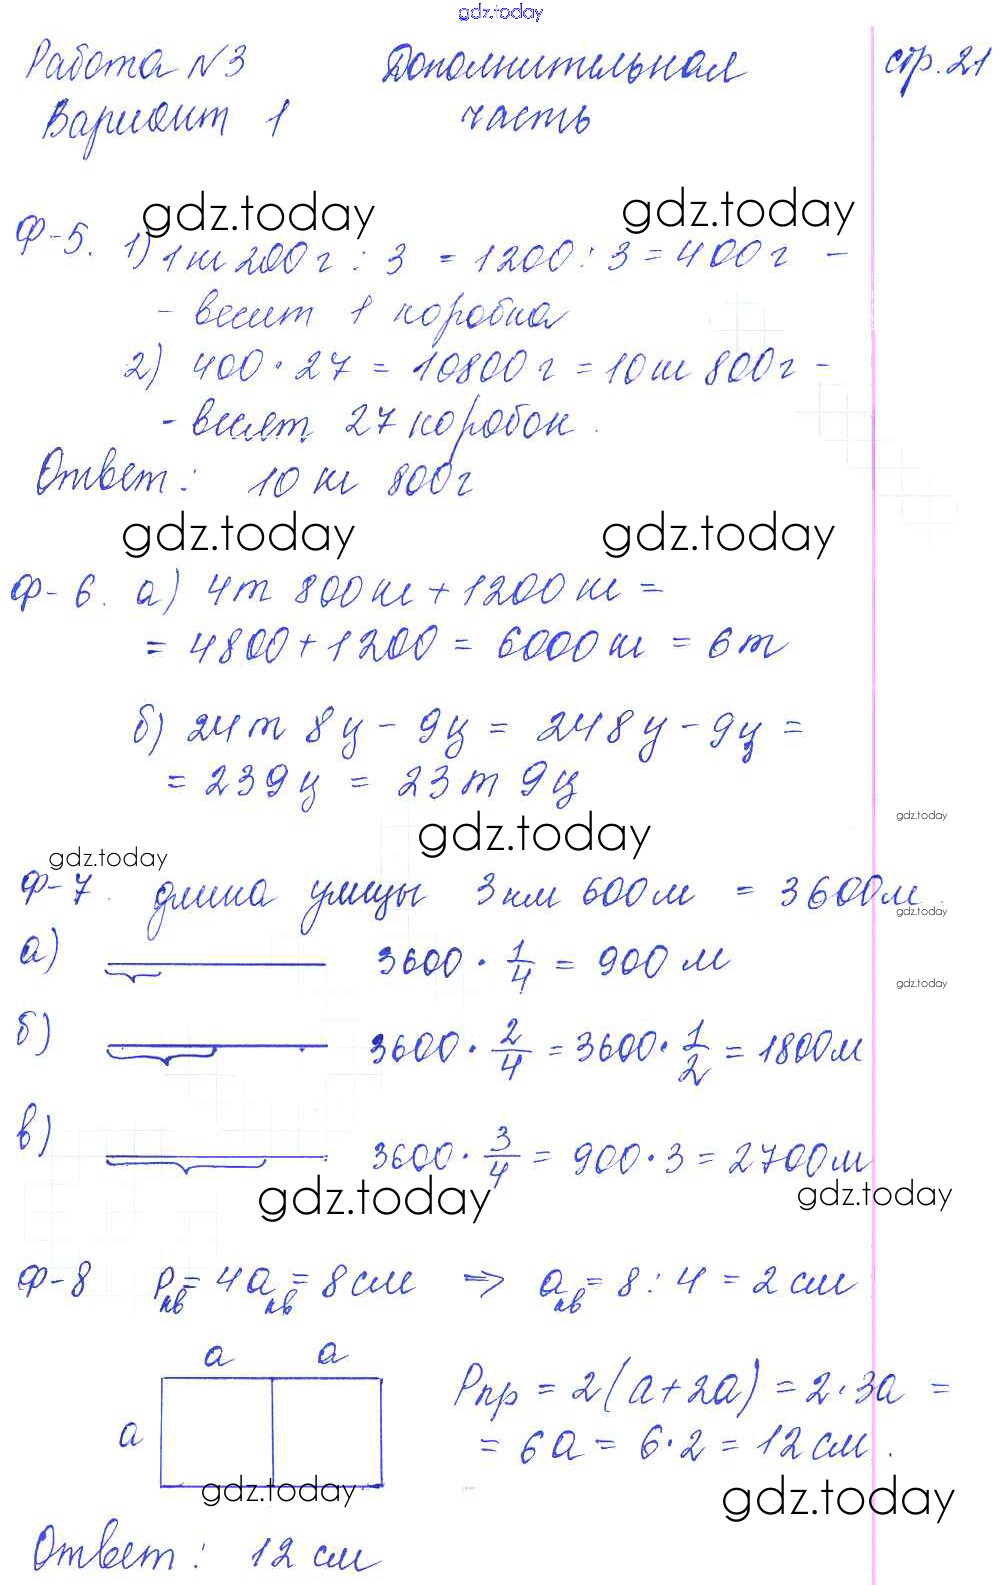 gdz.today
Работа №3 Дополнительная стр. 21
Вариант 1 часть
gdz.today gdz.today
Ф-5. 1) 1 кг 200 г : 3 = 1200 : 3 = 400 г -
- весит 1 коробка
2) 400 · 27 = 10800 г = 10 кг 800 г -
- весят 27 коробок.
Ответ: 10 кг 800 г
gdz.today gdz.today
Ф-6. а) 4 т 800 кг + 1200 кг =
= 4800 + 1200 = 6000 кг = 6 т
б) 24 т 8 ц - 9 ц = 248 ц - 9 ц =
= 239 ц = 23 т 9 ц
gdz.today gdz.today
gdz.today
Ф-7. длина улицы 3 км 600 м = 3600 м.
gdz.today
а) 3600 · 1/4 = 900 м
gdz.today
б) 3600 · 2/4 = 3600 · 1/2 = 1800 м
в) 3600 · 3/4 = 900 · 3 = 2700 м
gdz.today gdz.today
Ф-8 Pкв = 4aкв = 8 см ⇒ aкв = 8 : 4 = 2 см
a a
Pпр = 2(a + 2a) = 2 · 3a =
a = 6a = 6 · 2 = 12 см.
gdz.today gdz.today
Ответ: 12 см